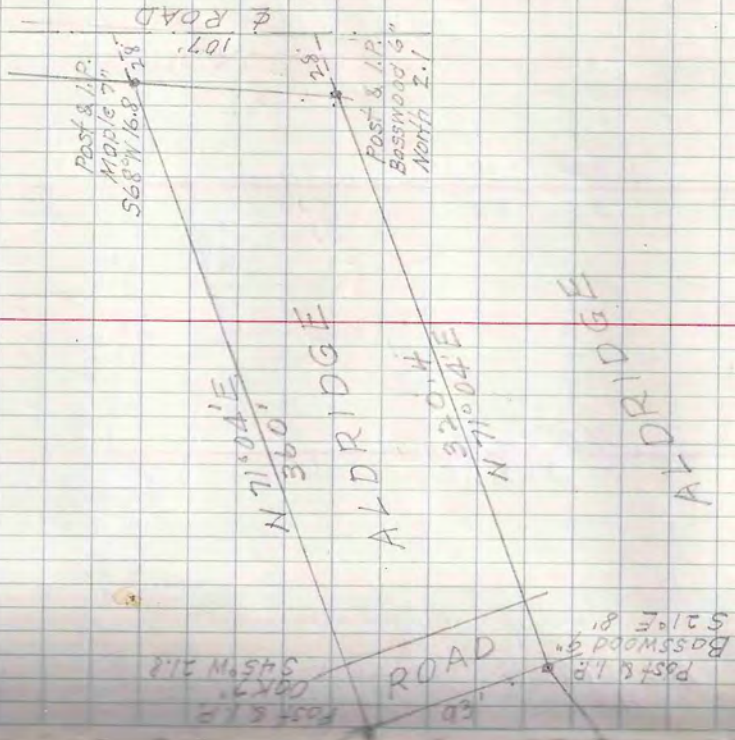 ℄ ROAD
107'
28'
28'
Post & I.P.
Maple 7"
S68°W 16.8
Post & I.P.
Basswood 6"
North 2.1
N 71°04'E
360'
ALDRIDGE
320.4
N 71°04'E
ALDRIDGE
ROAD
Post & I.P.
Oak 7"
S45°W 21.2
Post & I.P.
Basswood 9"
S21°E 8'